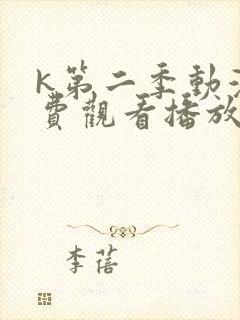 K第二季動
費觀看播放
李蓓